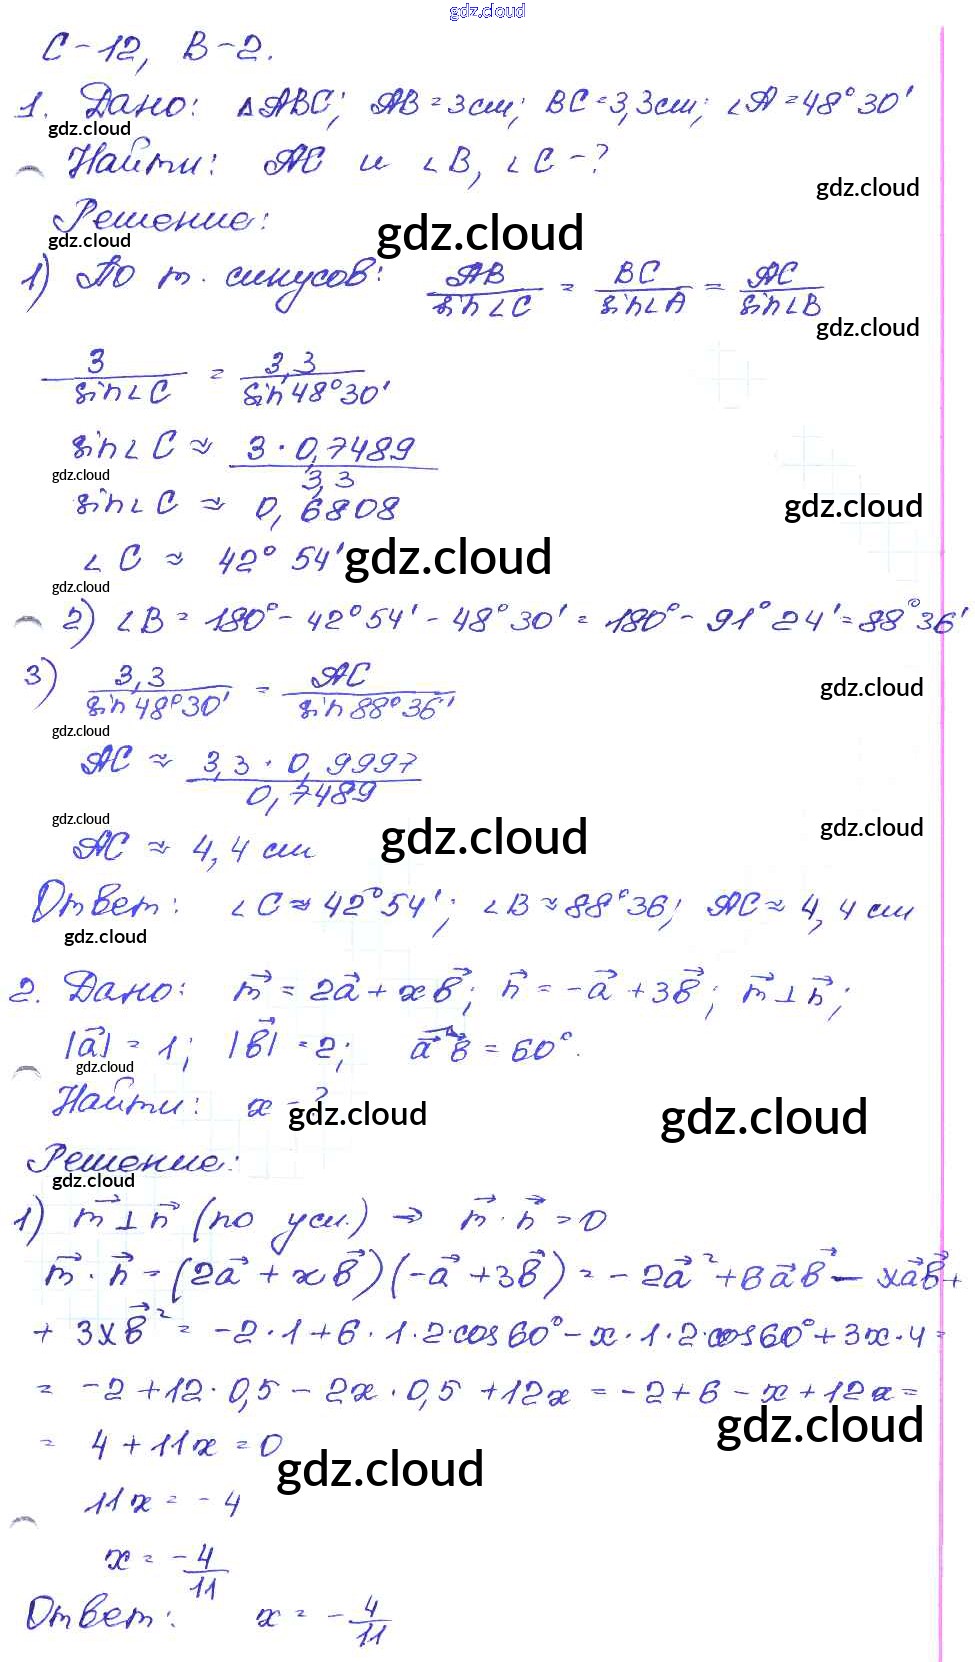 gdz.cloud
С-12, В-2.
1. Дано: △ABC; AB = 3см; BC = 3,3см; ∠A = 48°30'
gdz.cloud
Найти: AC и ∠B, ∠C - ?
gdz.cloud
Решение:
gdz.cloud
gdz.cloud
1) По т. синусов: AB/sin∠C = BC/sin∠A = AC/sin∠B
gdz.cloud
3/sin∠C = 3,3/sin48°30'
sin∠C ≈ 3·0,7489/3,3
gdz.cloud
sin∠C ≈ 0,6808
gdz.cloud
∠C ≈ 42°54'
gdz.cloud
gdz.cloud
2) ∠B = 180° - 42°54' - 48°30' = 180° - 91°24' = 88°36'
3) 3,3/sin48°30' = AC/sin88°36'
gdz.cloud
gdz.cloud
AC ≈ 3,3·0,9997/0,7489
gdz.cloud
gdz.cloud
gdz.cloud
AC ≈ 4,4 см
Ответ: ∠C ≈ 42°54'; ∠B ≈ 88°36; AC ≈ 4,4 см
gdz.cloud
2. Дано: m⃗ = 2a⃗ + xb⃗; n⃗ = -a⃗ + 3b⃗; m⃗ ⊥ n⃗;
|a⃗| = 1; |b⃗| = 2; a⃗^b⃗ = 60°.
gdz.cloud
Найти: x - ?
gdz.cloud
gdz.cloud
Решение:
gdz.cloud
1) m⃗ ⊥ n⃗ (по усл.) → m⃗ · n⃗ = 0
m⃗ · n⃗ = (2a⃗ + xb⃗)(-a⃗ + 3b⃗) = -2a⃗² + 6a⃗b⃗ - xa⃗b⃗ +
+ 3xb⃗² = -2·1 + 6·1·2·cos60° - x·1·2·cos60° + 3x·4 =
= -2 + 12·0,5 - 2x·0,5 + 12x = -2 + 6 - x + 12x =
gdz.cloud
= 4 + 11x = 0
gdz.cloud
11x = -4
x = -4/11
Ответ: x = -4/11